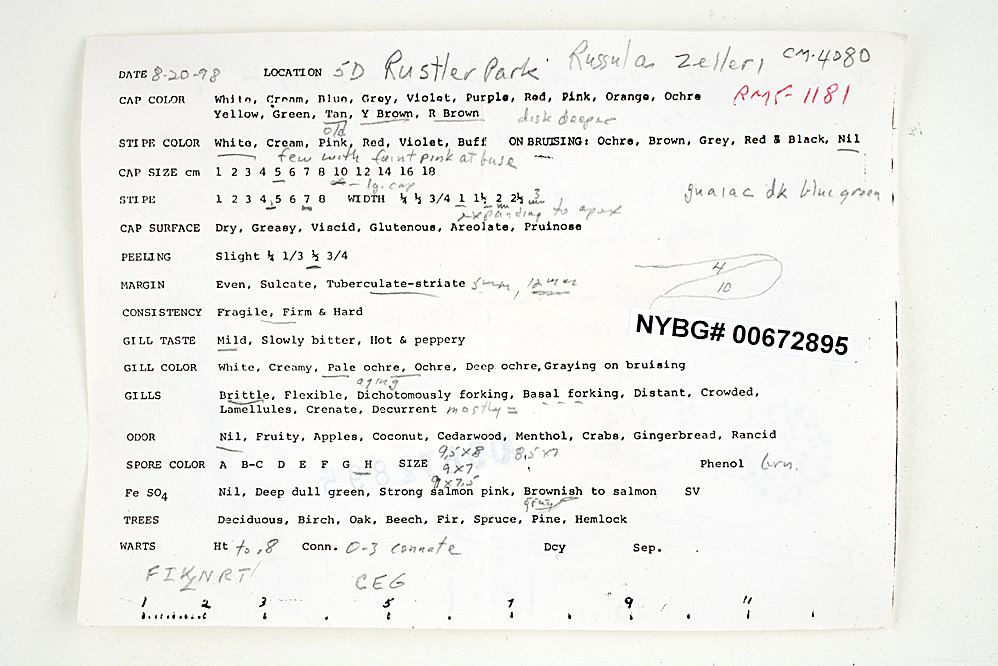 DATE 8-20-98 LOCATION 5D Rustler Park Russula zelleri CM-4080
CAP COLOR White, Cream, Blue, Grey, Violet, Purple, Red, Pink, Orange, Ochre RMS-1181
Yellow, Green, Tan, Y Brown, R Brown disk deeper
old
STIPE COLOR White, Cream, Pink, Red, Violet, Buff ON BRUISING: Ochre, Brown, Grey, Red & Black, Nil
few with faint pink at base
CAP SIZE cm 1 2 3 4 5 6 7 8 10 12 14 16 18
lg. cap
guaiac dk blue green
STIPE 1 2 3 4 5 6 7 8 WIDTH ¼ ½ 3/4 1 1½ 2 2½ 3
expanding to apex
CAP SURFACE Dry, Greasy, Viscid, Glutenous, Areolate, Pruinose
PEELING Slight ¼ 1/3 ½ 3/4
4
MARGIN Even, Sulcate, Tuberculate-striate 5mm, 12mm
10
CONSISTENCY Fragile, Firm & Hard
NYBG# 00672895
GILL TASTE Mild, Slowly bitter, Hot & peppery
GILL COLOR White, Creamy, Pale ochre, Ochre, Deep ochre, Graying on bruising
aging
GILLS Brittle, Flexible, Dichotomously forking, Basal forking, Distant, Crowded,
Lamellules, Crenate, Decurrent mostly =
ODOR Nil, Fruity, Apples, Coconut, Cedarwood, Menthol, Crabs, Gingerbread, Rancid
9.5x8 8.5x7
SPORE COLOR A B-C D E F G H SIZE 9x7 Phenol brn.
9x7.5
Fe SO4 Nil, Deep dull green, Strong salmon pink, Brownish to salmon SV
TREES Deciduous, Birch, Oak, Beech, Fir, Spruce, Pine, Hemlock
WARTS Ht to .8 Conn. 0-3 connate Dcy Sep.
FIK2NRT CEG
1 2 3 5 7 9 11